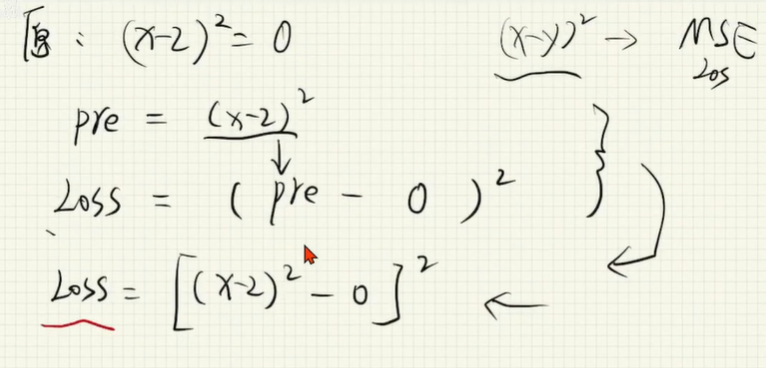 原: (x-2)² = 0
(x-y)² → MSE
Los
pre = (x-2)²
↓
Loss = ( pre - 0 )²
Loss = [(x-2)² - 0]² ←